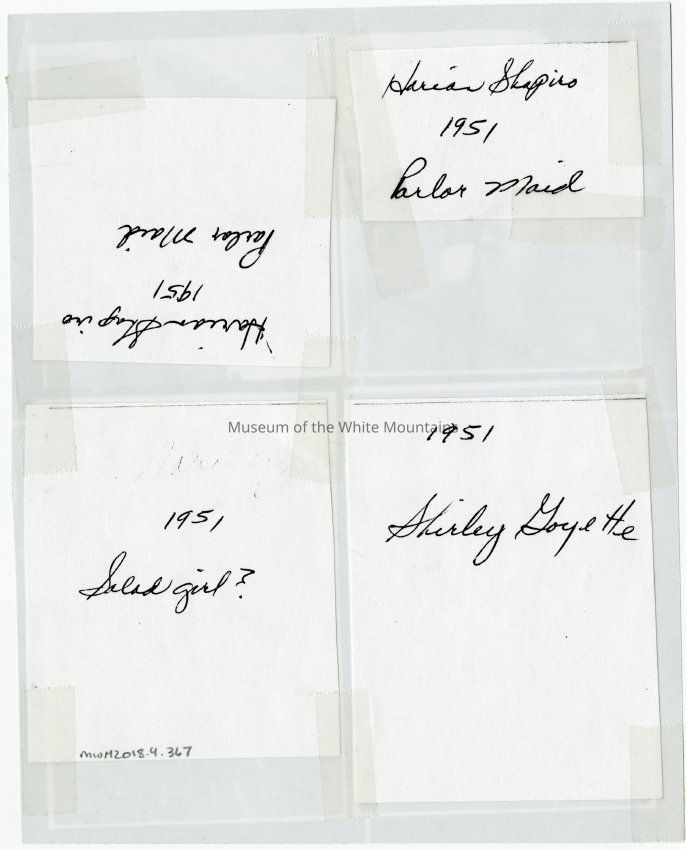 Harian Shapiro
1951
Parlor Maid
Harian Shapiro
1951
Parlor Maid
Museum of the White Mountains
1951
Salad girl?
MWM2018.9.367
1951
Shirley Goyette